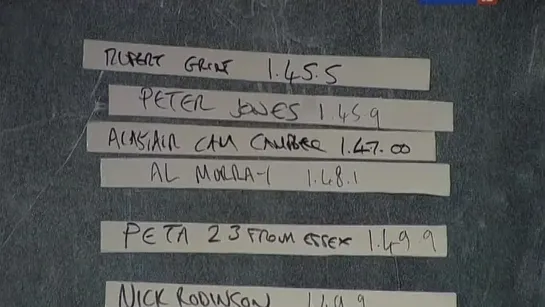 RUPERT GRINT 1.45.5
PETER JONES 1.45.9
ALASTAIR CAM CAMPBEE 1.47.00
AL MORRA-Y 1.48.1
PETA 23 FROM ESSEX 1.49.9
NICK RODINSON 1.49.9